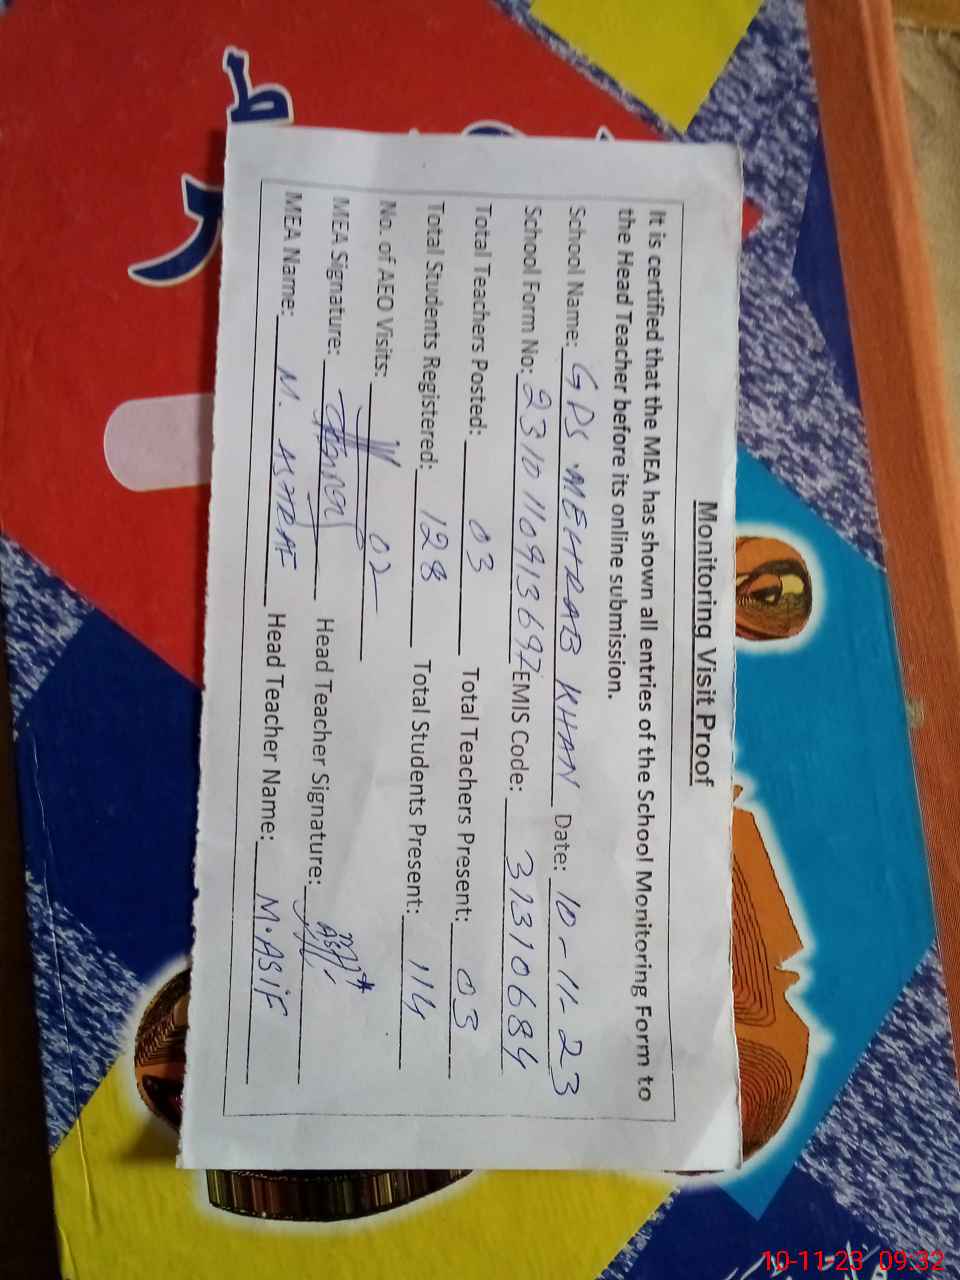 Monitoring Visit Proof
It is certified that the MEA has shown all entries of the School Monitoring Form to
the Head Teacher before its online submission.
School Name: GPS MEHRAB KHAN Date: 10-11-23
School Form No: EMIS Code: 31310684
Total Teachers Posted: 03 Total Teachers Present: 03
Total Students Registered: 128 Total Students Present: 114
No. of AEO Visits: 02
MEA Signature: Head Teacher Signature:
MEA Name: M. ASHRAF Head Teacher Name: M. ASIF
10-11-23 09:32